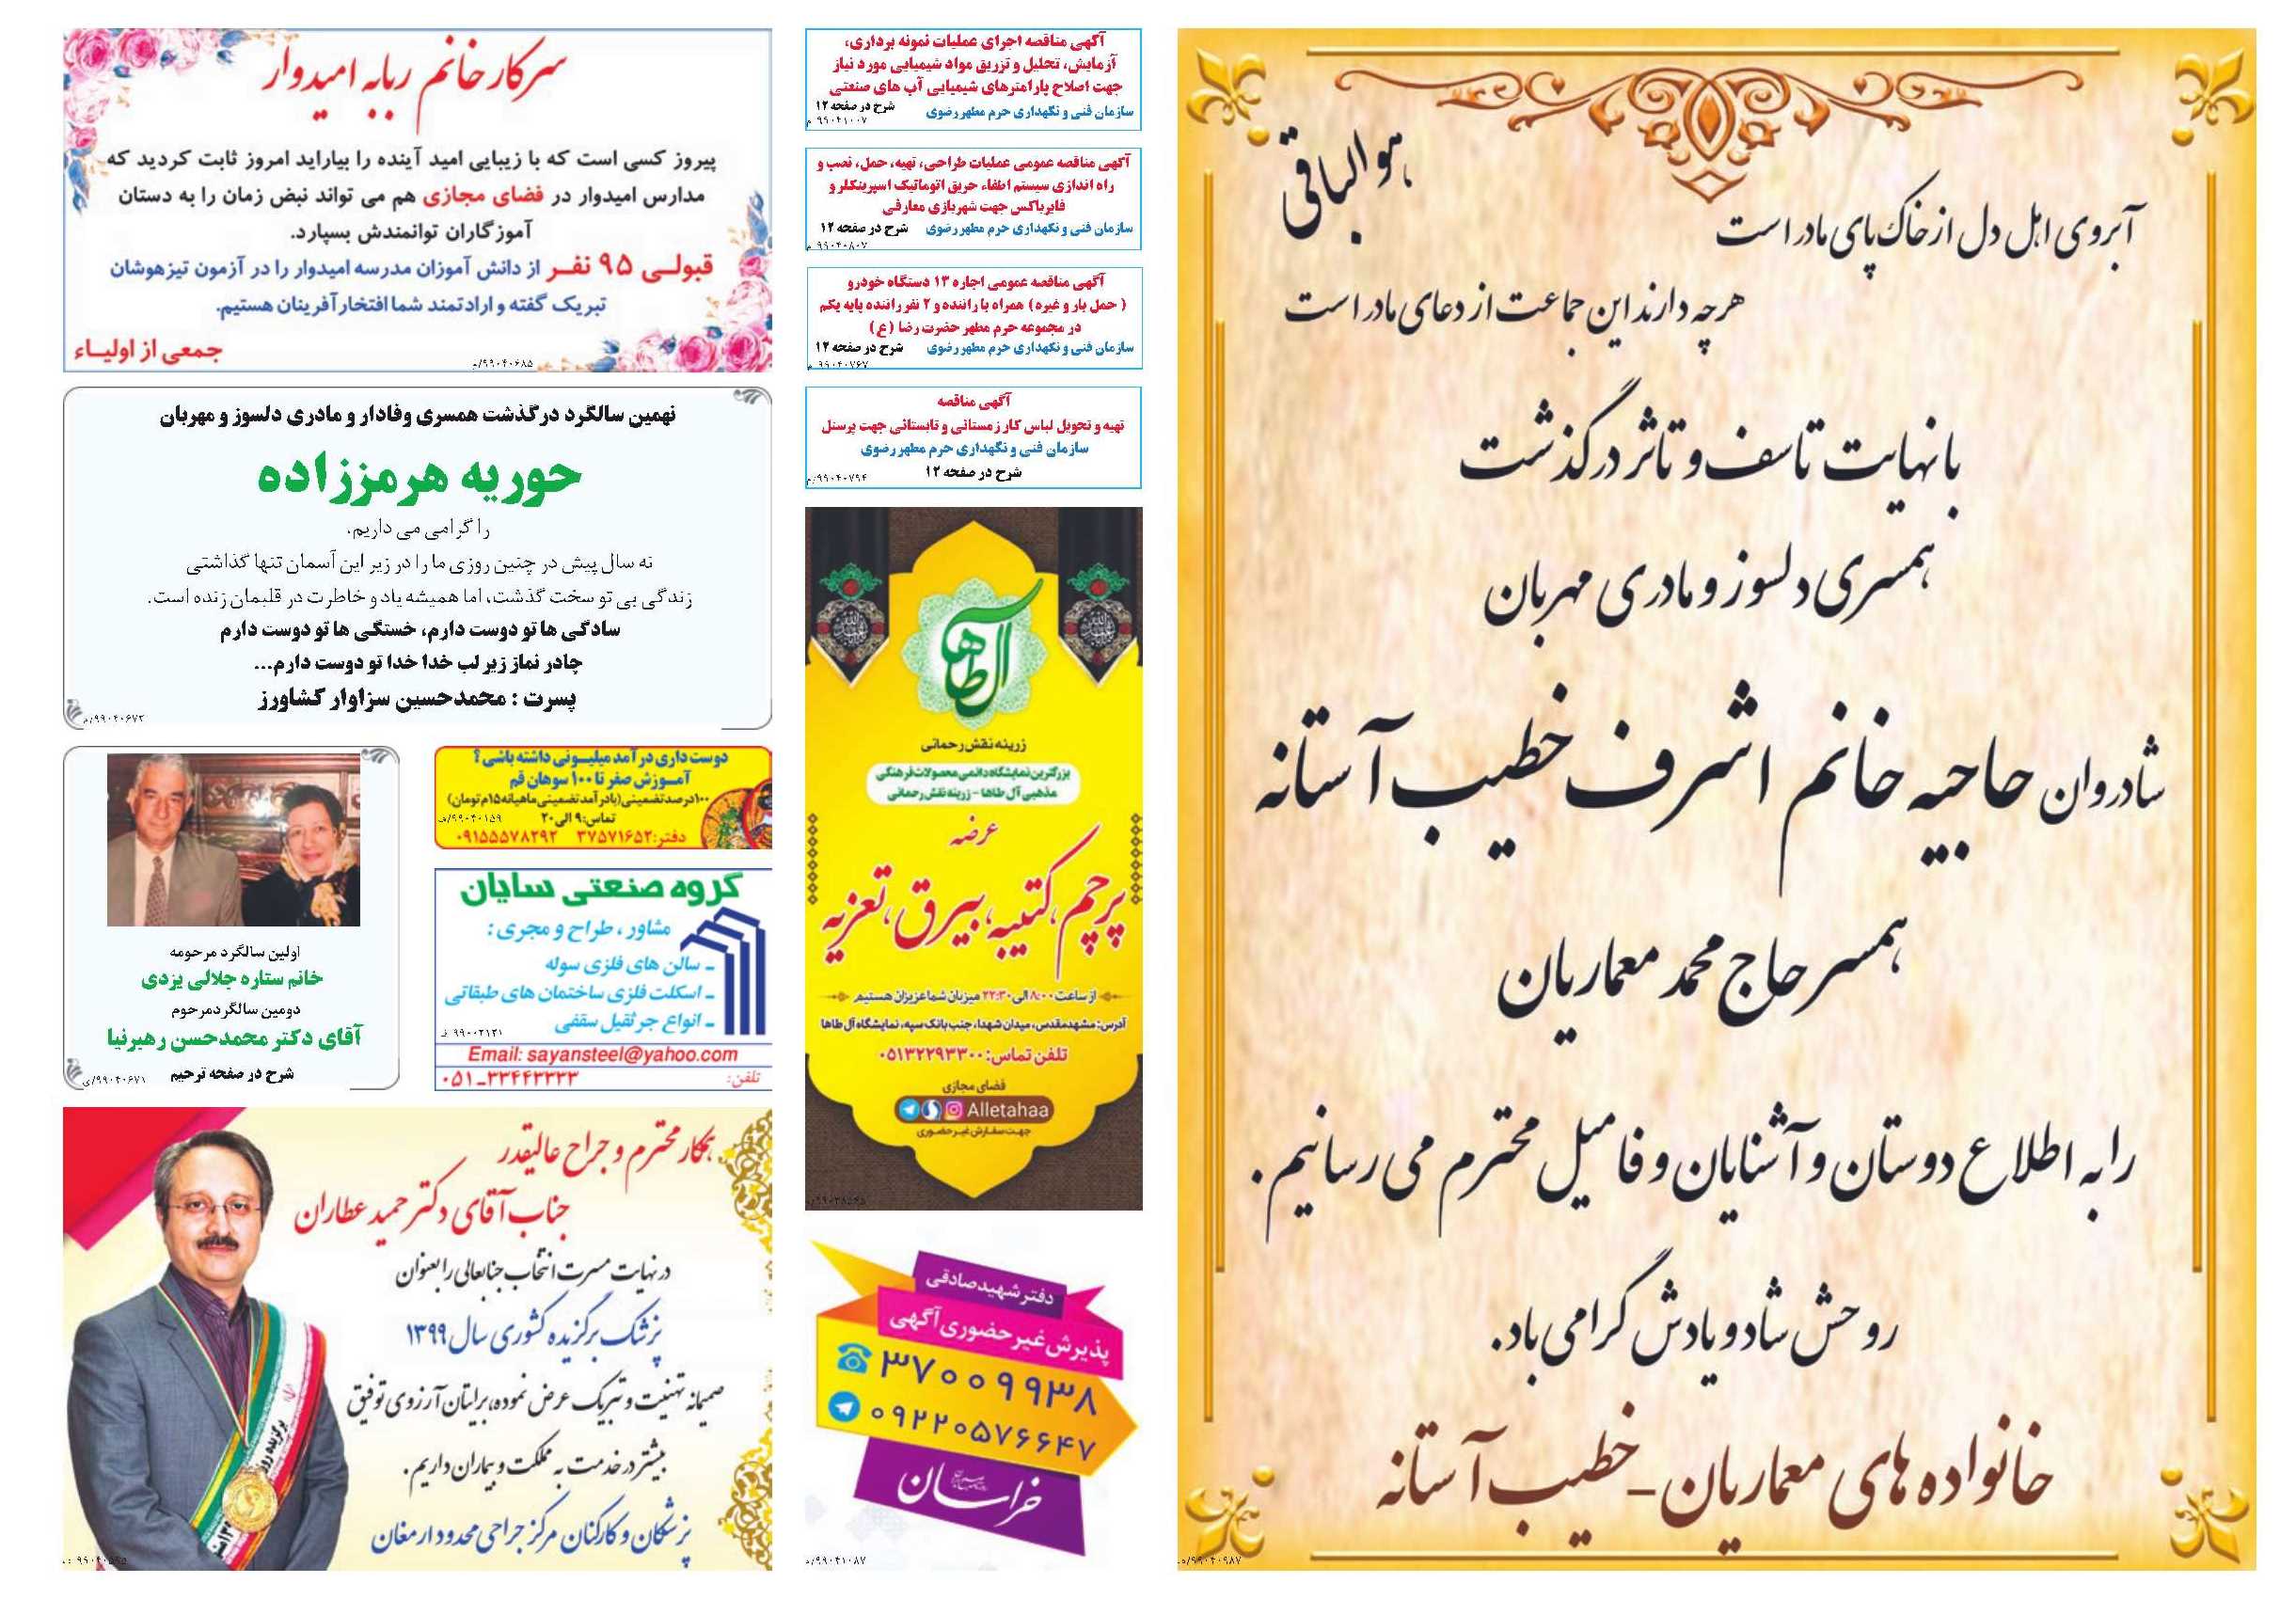 هوالباقی
آبروی اهل دل از خاک پای مادر است
هرچه دارند این جماعت از دعای مادر است
با نهایت تاسف و تاثر درگذشت
همسری دلسوز و مادری مهربان
شادروان حاجیه خانم اشرف خطیب آستانه
همسر حاج محمد معماریان
را به اطلاع دوستان و آشنایان و فامیل محترم می رسانیم.
روحش شاد و یادش گرامی باد.
خانواده های معماریان - خطیب آستانه
۹۹۰۴۰۹۸۷/م
آگهی مناقصه اجرای عملیات نمونه برداری،
آزمایش، تحلیل و تزریق مواد شیمیایی مورد نیاز
جهت اصلاح پارامترهای شیمیایی آب های صنعتی
سازمان فنی و نگهداری حرم مطهر رضوی شرح در صفحه ۱۲
۹۹۰۴۱۰۰۷ م
آگهی مناقصه عمومی عملیات طراحی، تهیه، حمل، نصب و
راه اندازی سیستم اطفاء حریق اتوماتیک اسپرینکلر و
فایرباکس جهت شهربازی معارفی
سازمان فنی و نگهداری حرم مطهر رضوی شرح در صفحه ۱۲
۹۹۰۴۰۸۰۷ م
آگهی مناقصه عمومی اجاره ۱۳ دستگاه خودرو
( حمل بار و غیره ) همراه با راننده و ۲ نفر راننده پایه یکم
در مجموعه حرم مطهر حضرت رضا (ع)
سازمان فنی و نگهداری حرم مطهر رضوی شرح در صفحه ۱۲
۹۹۰۴۰۷۶۷ م
آگهی مناقصه
تهیه و تحویل لباس کار زمستانی و تابستانی جهت پرسنل
سازمان فنی و نگهداری حرم مطهر رضوی
شرح در صفحه ۱۲
۹۹۰۴۰۷۹۴/م
آل طاها
زرینه نقش رحمانی
بزرگترین نمایشگاه دائمی محصولات فرهنگی
مذهبی آل طاها - زرینه نقش رحمانی
عرضه
پرچم، کتیبه، بیرق، تعزیه
از ساعت ۸:۰۰ الی ۲۲:۳۰ میزبان شما عزیزان هستیم
آدرس: مشهدمقدس، میدان شهدا، جنب بانک سپه، نمایشگاه آل طاها
تلفن تماس: ۰۵۱۳۲۲۹۳۳۰۰
فضای مجازی
Alletahaa
جهت سفارش غیر حضوری
دفتر شهید صادقی
پذیرش غیر حضوری آگهی
۳۷۰۰۹۹۳۸
۰۹۲۲۰۵۷۶۶۴۷
خراسان
۹۹۰۴۱۰۸۷/م
سرکار خانم ربابه امیدوار
پیروز کسی است که با زیبایی امید آینده را بیاراید امروز ثابت کردید که
مدارس امیدوار در فضای مجازی هم می تواند نبض زمان را به دستان
آموزگاران توانمندش بسپارد.
قبولـی ۹۵ نفـر از دانش آموزان مدرسه امیدوار را در آزمون تیزهوشان
تبریک گفته و ارادتمند شما افتخار آفرینان هستیم.
جمعی از اولیـاء
۹۹۰۴۰۶۸۵/م
نهمین سالگرد درگذشت همسری وفادار و مادری دلسوز و مهربان
حوریه هرمززاده
را گرامی می داریم.
نه سال پیش در چنین روزی ما را در زیر این آسمان تنها گذاشتی
زندگی بی تو سخت گذشت، اما همیشه یاد و خاطرت در قلبمان زنده است.
سادگی ها تو دوست دارم، خستگی ها تو دوست دارم
چادر نماز زیر لب خدا خدا تو دوست دارم...
پسرت : محمدحسین سزاوار کشاورز
۹۹۰۴۰۶۷۳/م
دوست داری درآمد میلیـونی داشته باشی؟
آمـوزش صفر تا ۱۰۰ سوهان قم
۱۰۰درصدتضمینی(بادرآمدتضمینی ماهیانه۱۵م تومان)
تماس:۹ الی ۲۰
۹۹۰۴۰۱۵۹/ف
دفتر:۳۷۵۷۱۶۵۲ ۰۹۱۵۵۵۷۸۲۹۲
گروه صنعتی سایان
مشاور ، طراح و مجری :
ـ سالن های فلزی سوله
ـ اسکلت فلزی ساختمان های طبقاتی
ـ انواع جرثقیل سقفی
۹۹۰۰۲۱۲۱ ف
Email: sayansteel@yahoo.com
تلفن: ۰۵۱-۳۳۴۴۳۳۳۳
اولین سالگرد مرحومه
خانم ستاره جلالی یزدی
دومین سالگرد مرحوم
آقای دکتر محمدحسن رهبرنیا
شرح در صفحه ترحیم
۹۹۰۴۰۶۷۱/ی
همکار محترم و جراح عالیقدر
جناب آقای دکتر حمید عطاران
در نهایت مسرت انتخاب جنابعالی را بعنوان
پزشک برگزیده کشوری سال ۱۳۹۹
صمیمانه تهنیت و تبریک عرض نموده، برایتان آرزوی توفیق
بیشتر در خدمت به مملکت و بیماران داریم.
پزشکان و کارکنان مرکز جراحی محدود ارمغان